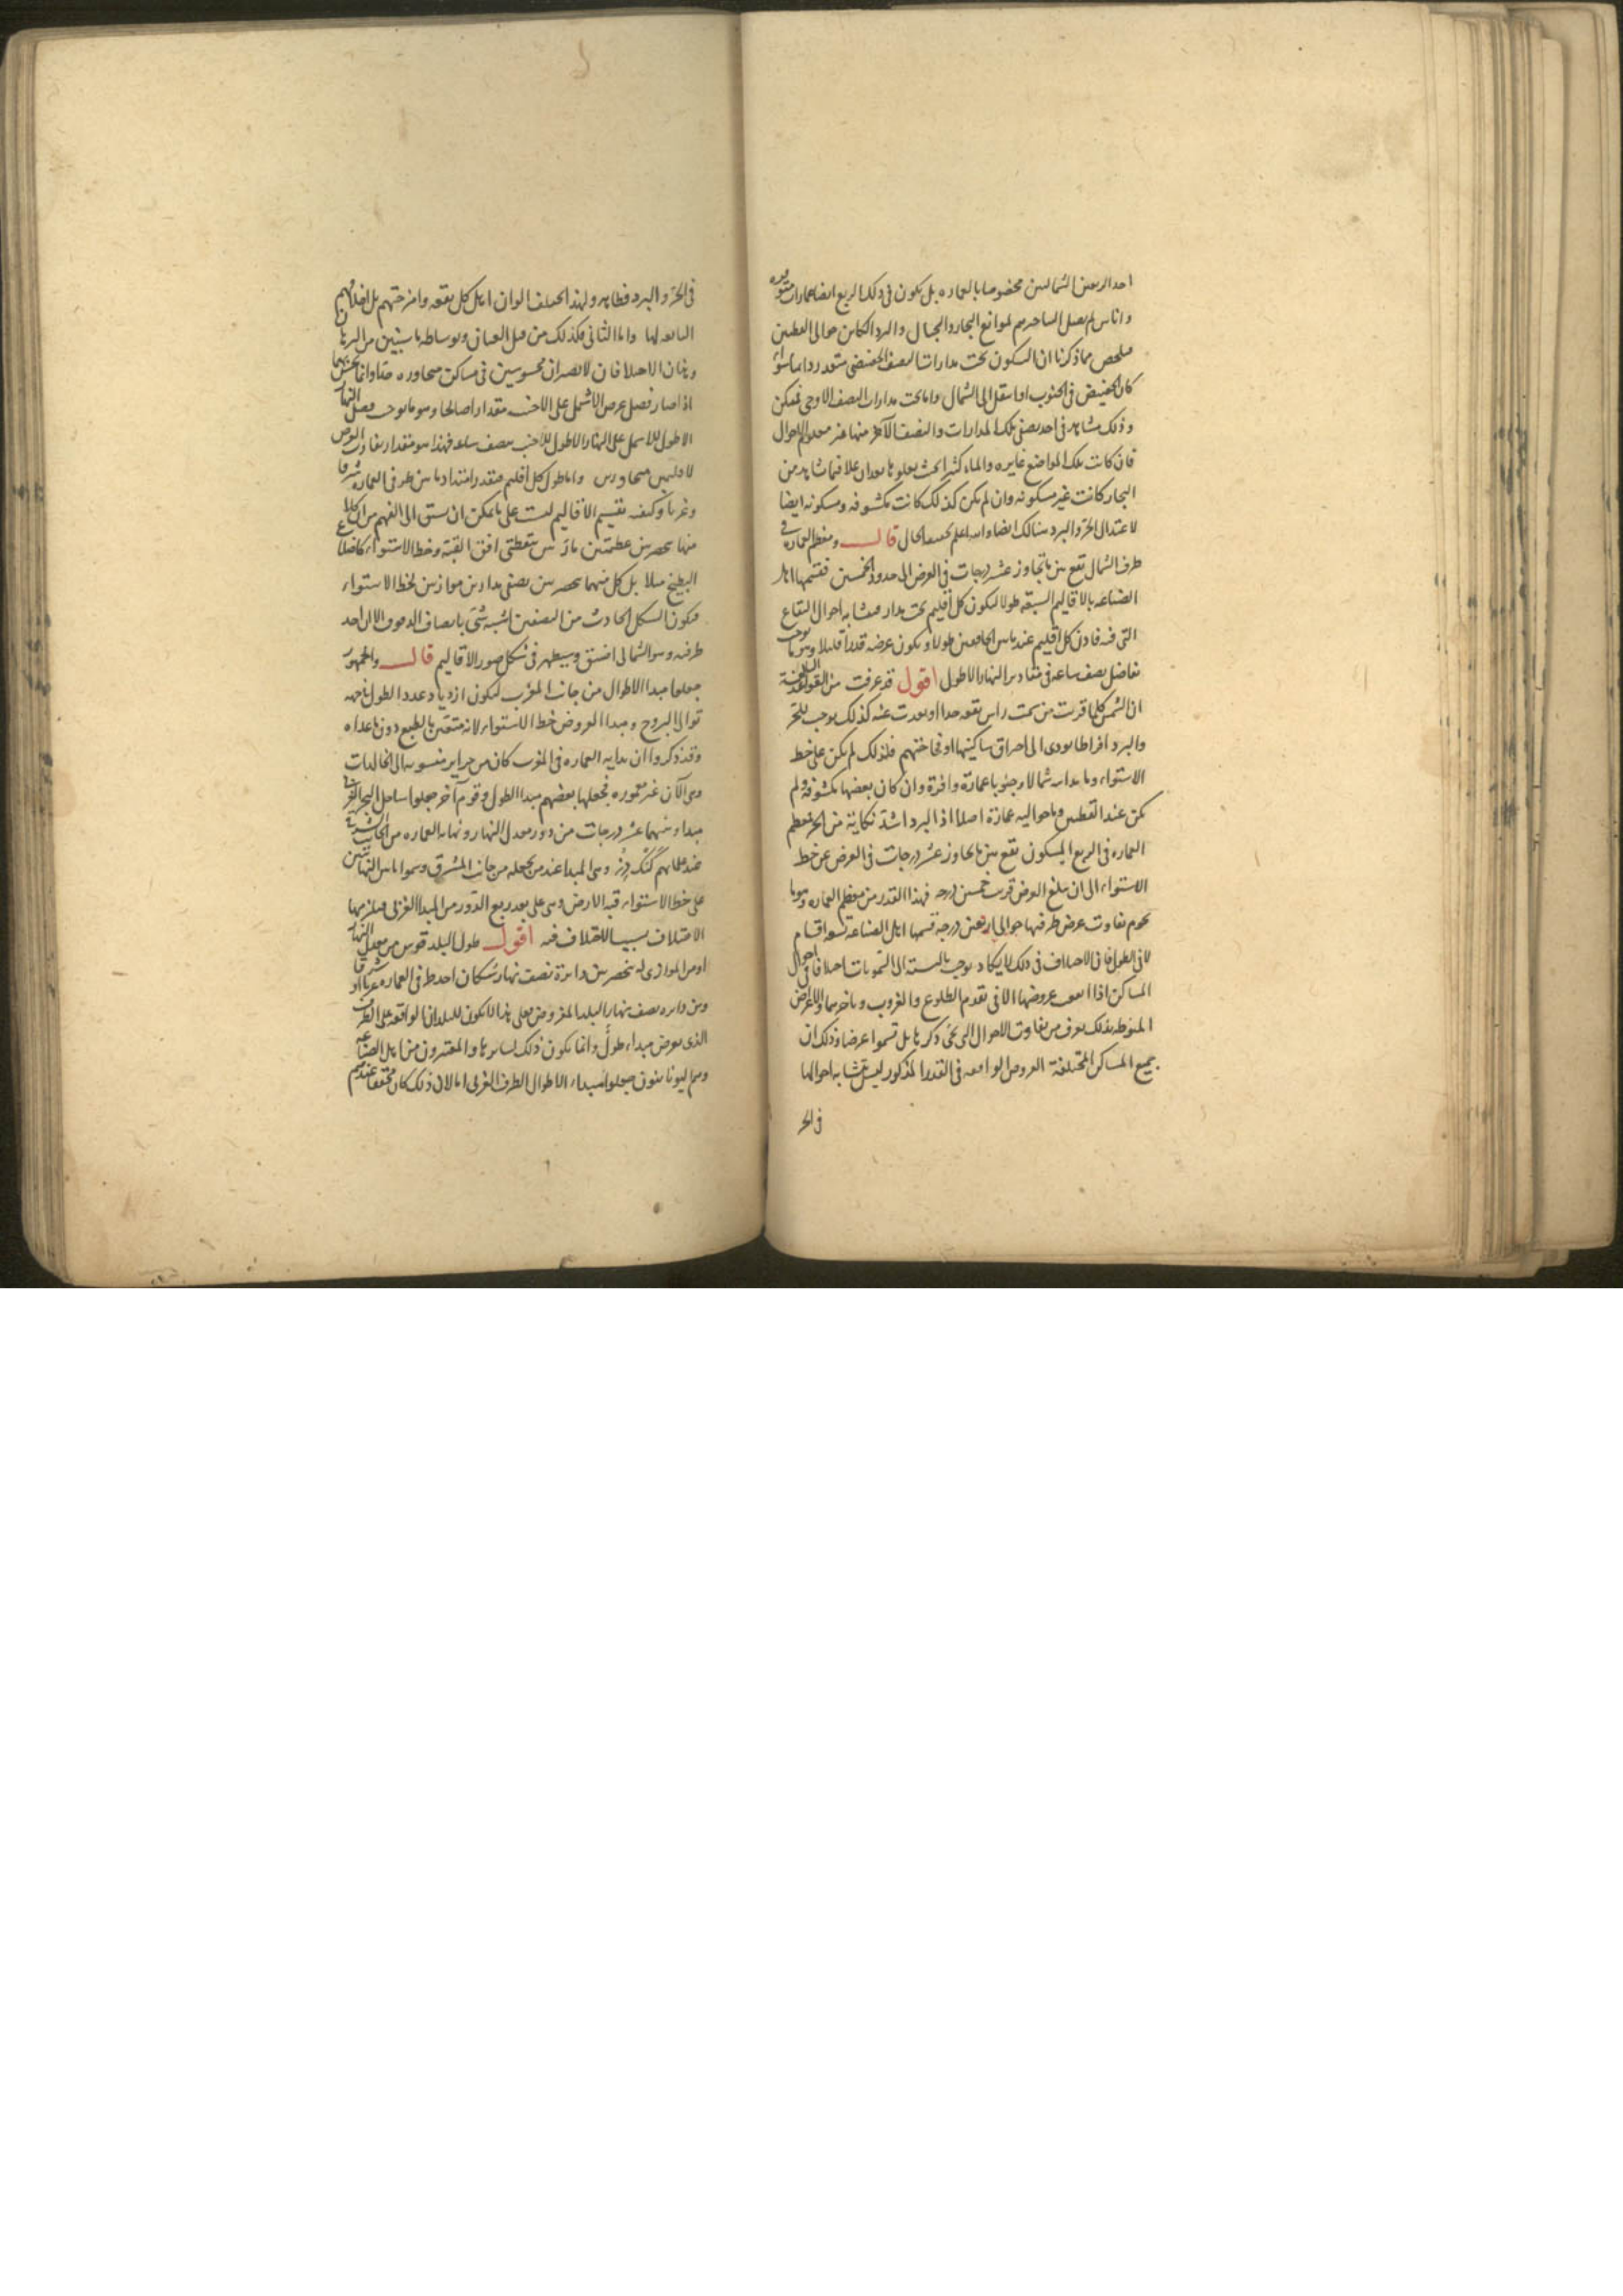 احد الربعين الشماليين مخصوصا بالعماره بل يكون فى ذلك الربع ايضا عمارات متفرقه
واناس لم يصل الينا خبرهم لموانع البحار والجبال والبرد الكاين حوالى القطبين
ملخص مما ذكرنا ان السكون تحت مدارات النصف الحضيضى متعذر دايما سواء
كان الحضيض فى الجنوب او انتقل الى الشمال واما تحت مدارات النصف الاوجى فممكن
وذلك مشاهد فى احد نصفى تلك المدارات والنصف الآخر منها غير معلوم الاحوال
فان كانت تلك المواضع غايره والماء كثيرا بحيث يعلوها بعدان علا فيما شاهد من
البحار كانت غير مسكونه وان لم يكن كذلك كانت مكشوفه ومسكونه ايضا
لاعتدال الحر والبرد هنالك ايضا والله اعلم بحقيقه الحال قال ومعظم العماره فى
طرف الشمال تقع بين ما تجاوز عشر درجات فى العرض الى حدود الخمسين فقسمها اهل
الصناعه بالاقاليم السبعه طولا ليكون كل اقليم تحت مدار متشابه احوال البقاع
التى فيه فاذن كل اقليم عندهم ما بين الخافقين طولا ويكون عرضه قدرا قليلا وهو ما يوجب
تفاضل نصف ساعه فى مقادير النهار الاطول اقول قد عرفت من القواعد السالفة
ان الشمس كلما قربت من سمت راس بقعه جدا او بعدت عنه كذلك يوجب للحر
والبرد افراطا يودى الى احراق ساكنيها او فجاجتهم فلذلك لم يكن على خط
الاستواء وما يدانيه شمالا وجنوبا عمارة وافرة وان كان بعضها مكشوفة ولم
يكن عند القطبين وما حواليه عمارة اصلا اذ البرد اشد نكاية من الحر فمعظم
العماره فى الربع المسكون تقع بين ما يجاوز عشر درجات فى العرض عن خط
الاستواء الى ان يبلغ العرض قرب خمسين درجه فهذا القدر من معظم العماره وهو ما
يحوم تفاوت عرض طرفيها حوالى اربعين درجة قسمها اهل الصناعه سبعة اقسام
لا فى الطول فان الاختلاف فى ذلك لا يكاد يوجب بالنسبة الى السمويات اختلافا فى احوال
المساكن اذا اتفقت عروضها الا فى تقدم الطلوع والغروب وتأخرهما والاغراض
المنوطة بذلك يعرف من تفاوت الاحوال التى يجئ ذكرها بل قسموا عرضا وذلك ان
جميع المساكن المختلفة العروض الواقعه فى القدر المذكور ليس تتشابه احوالها
فى الحر
فى الحر والبرد فظاهر ولهذا اختلف الوان اهل كل بقعه وامزجتهم بل اخلاقهم
التابعه لها واما الثانى فكذلك من قبل العيان وبوساطه ما سيبين من البرهان
وهذان الاختلافان لا يصيران محسوسين فى مساكن متجاوره جدا وانما يحس بهما
اذا صار فضل عرض الاشمل على الاجنب مقدارا صالحا وهو ما يوجب فضل النهار
الاطول للاشمل على النهار الاطول للاجنب بنصف ساعه فهذا هو مقدار تفاوت العرض
لاقليمين متجاورين واما طول كل اقليم فبقدر امتداد ما بين طرفى العماره شرقا
وغربا وكيفيه تقسيم الاقاليم ليست على ما يمكن ان يسبق الى الفهم من ان كلا
منها ينحصر بين عظيمتين مارتين بنقطتى افق القبة وخط الاستواء كاضلاع
البطيخ مثلا بل كل منها ينحصر بين نصفى مدارين موازيين لخط الاستواء
فيكون الشكل الحادث من النصفين اشبه شئ بانصاف الدفوف الا ان احد
طرفيه وهو الشمالى اضيق وسيظهر فى شكل صور الاقاليم قال والجمهور
جعلوا مبدا الاطوال من جانب المغرب ليكون ازدياد عدد الطول فى جهه
توالى البروج ومبدا العروض خط الاستواء لانه متعين بالطبع دون ما عداه
وقد ذكروا ان بدايه العماره فى المغرب كان من جزاير منسوبه الى الخالدات
وهى الآن غير معموره فجعلها بعضهم مبدا الطول وقوم آخر جعلوا ساحل البحر الغربى
مبدا وبينهما عشر درجات من دور معدل النهار ونهايه العماره من الجانب الشرقى
عند علمائهم گنگ دژ وهى المبدا عند من يجعله من جانب المشرق وسموا ما بين النهايتين
على خط الاستواء قبه الارض وهى على بعد ربع الدور من المبدا الغربى فيلزمها
الاختلاف بسبب الاختلاف فيه اقول طول البلد قوس من معدل النهار
او من الموازى له ينحصر بين دايرة نصف نهار سكان احد طرفى العماره شرقيا او غربيا
وبين دايره نصف نهار البلد المفروض فعلى هذا لا يكون للبلدان الواقعه على الطرف
الذى يفرض مبداء طول وانما يكون ذلك لسايرها والمعتبرون من اهل الصناعه
وهم اليونانيون جعلوا مبداء الاطوال الطرف الغربى اما لان ذلك كان محققا عندهم